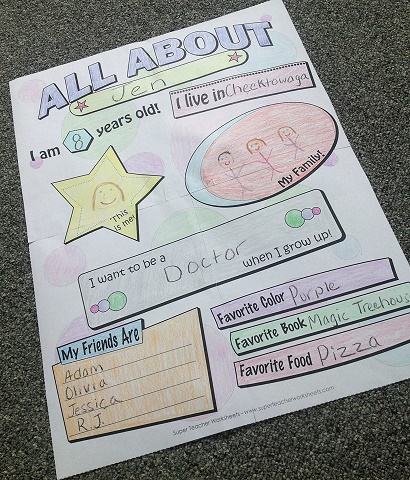 ALL ABOUT
Jen
I am 8 years old!
I live in Cheektowaga
This is me!
My Family!
I want to be a Doctor when I grow up!
My Friends Are
Adam
Olivia
Jessica
R.J.
Favorite Color Purple
Favorite Book Magic Treehous
Favorite Food Pizza
Super Teacher Worksheets - www.superteacherworksheets.com